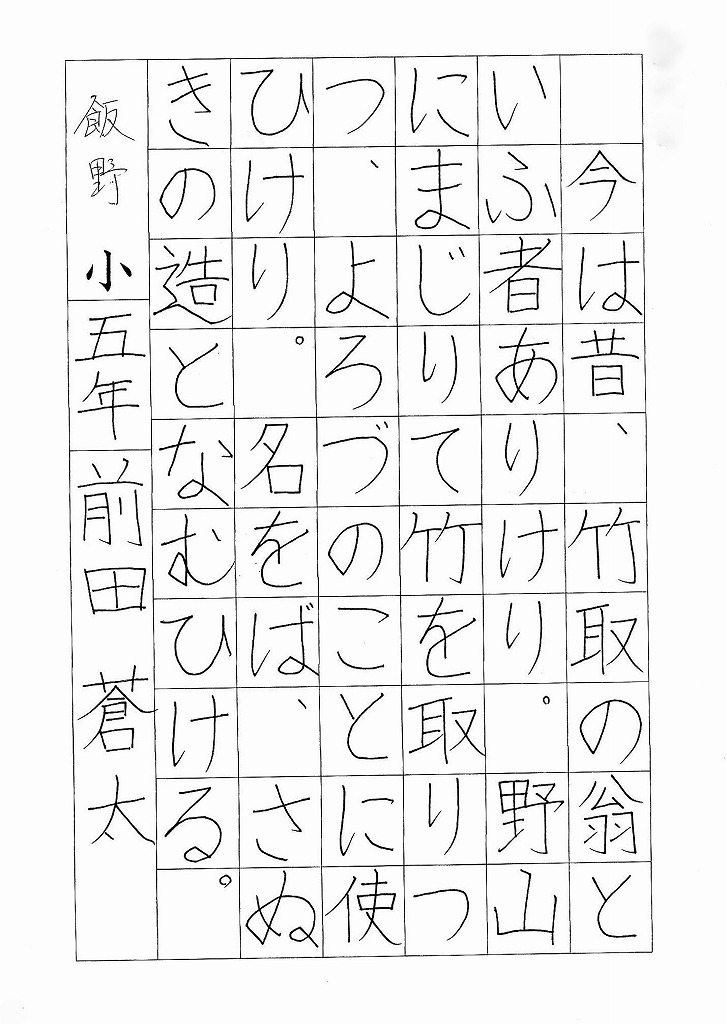 今は昔、竹取の翁と
いふ者ありけり。野山
にまじりて竹を取りつ
つ、よろづのことに使
ひけり。名をば、さぬ
きの造となむひける。
飯野小五年前田蒼太